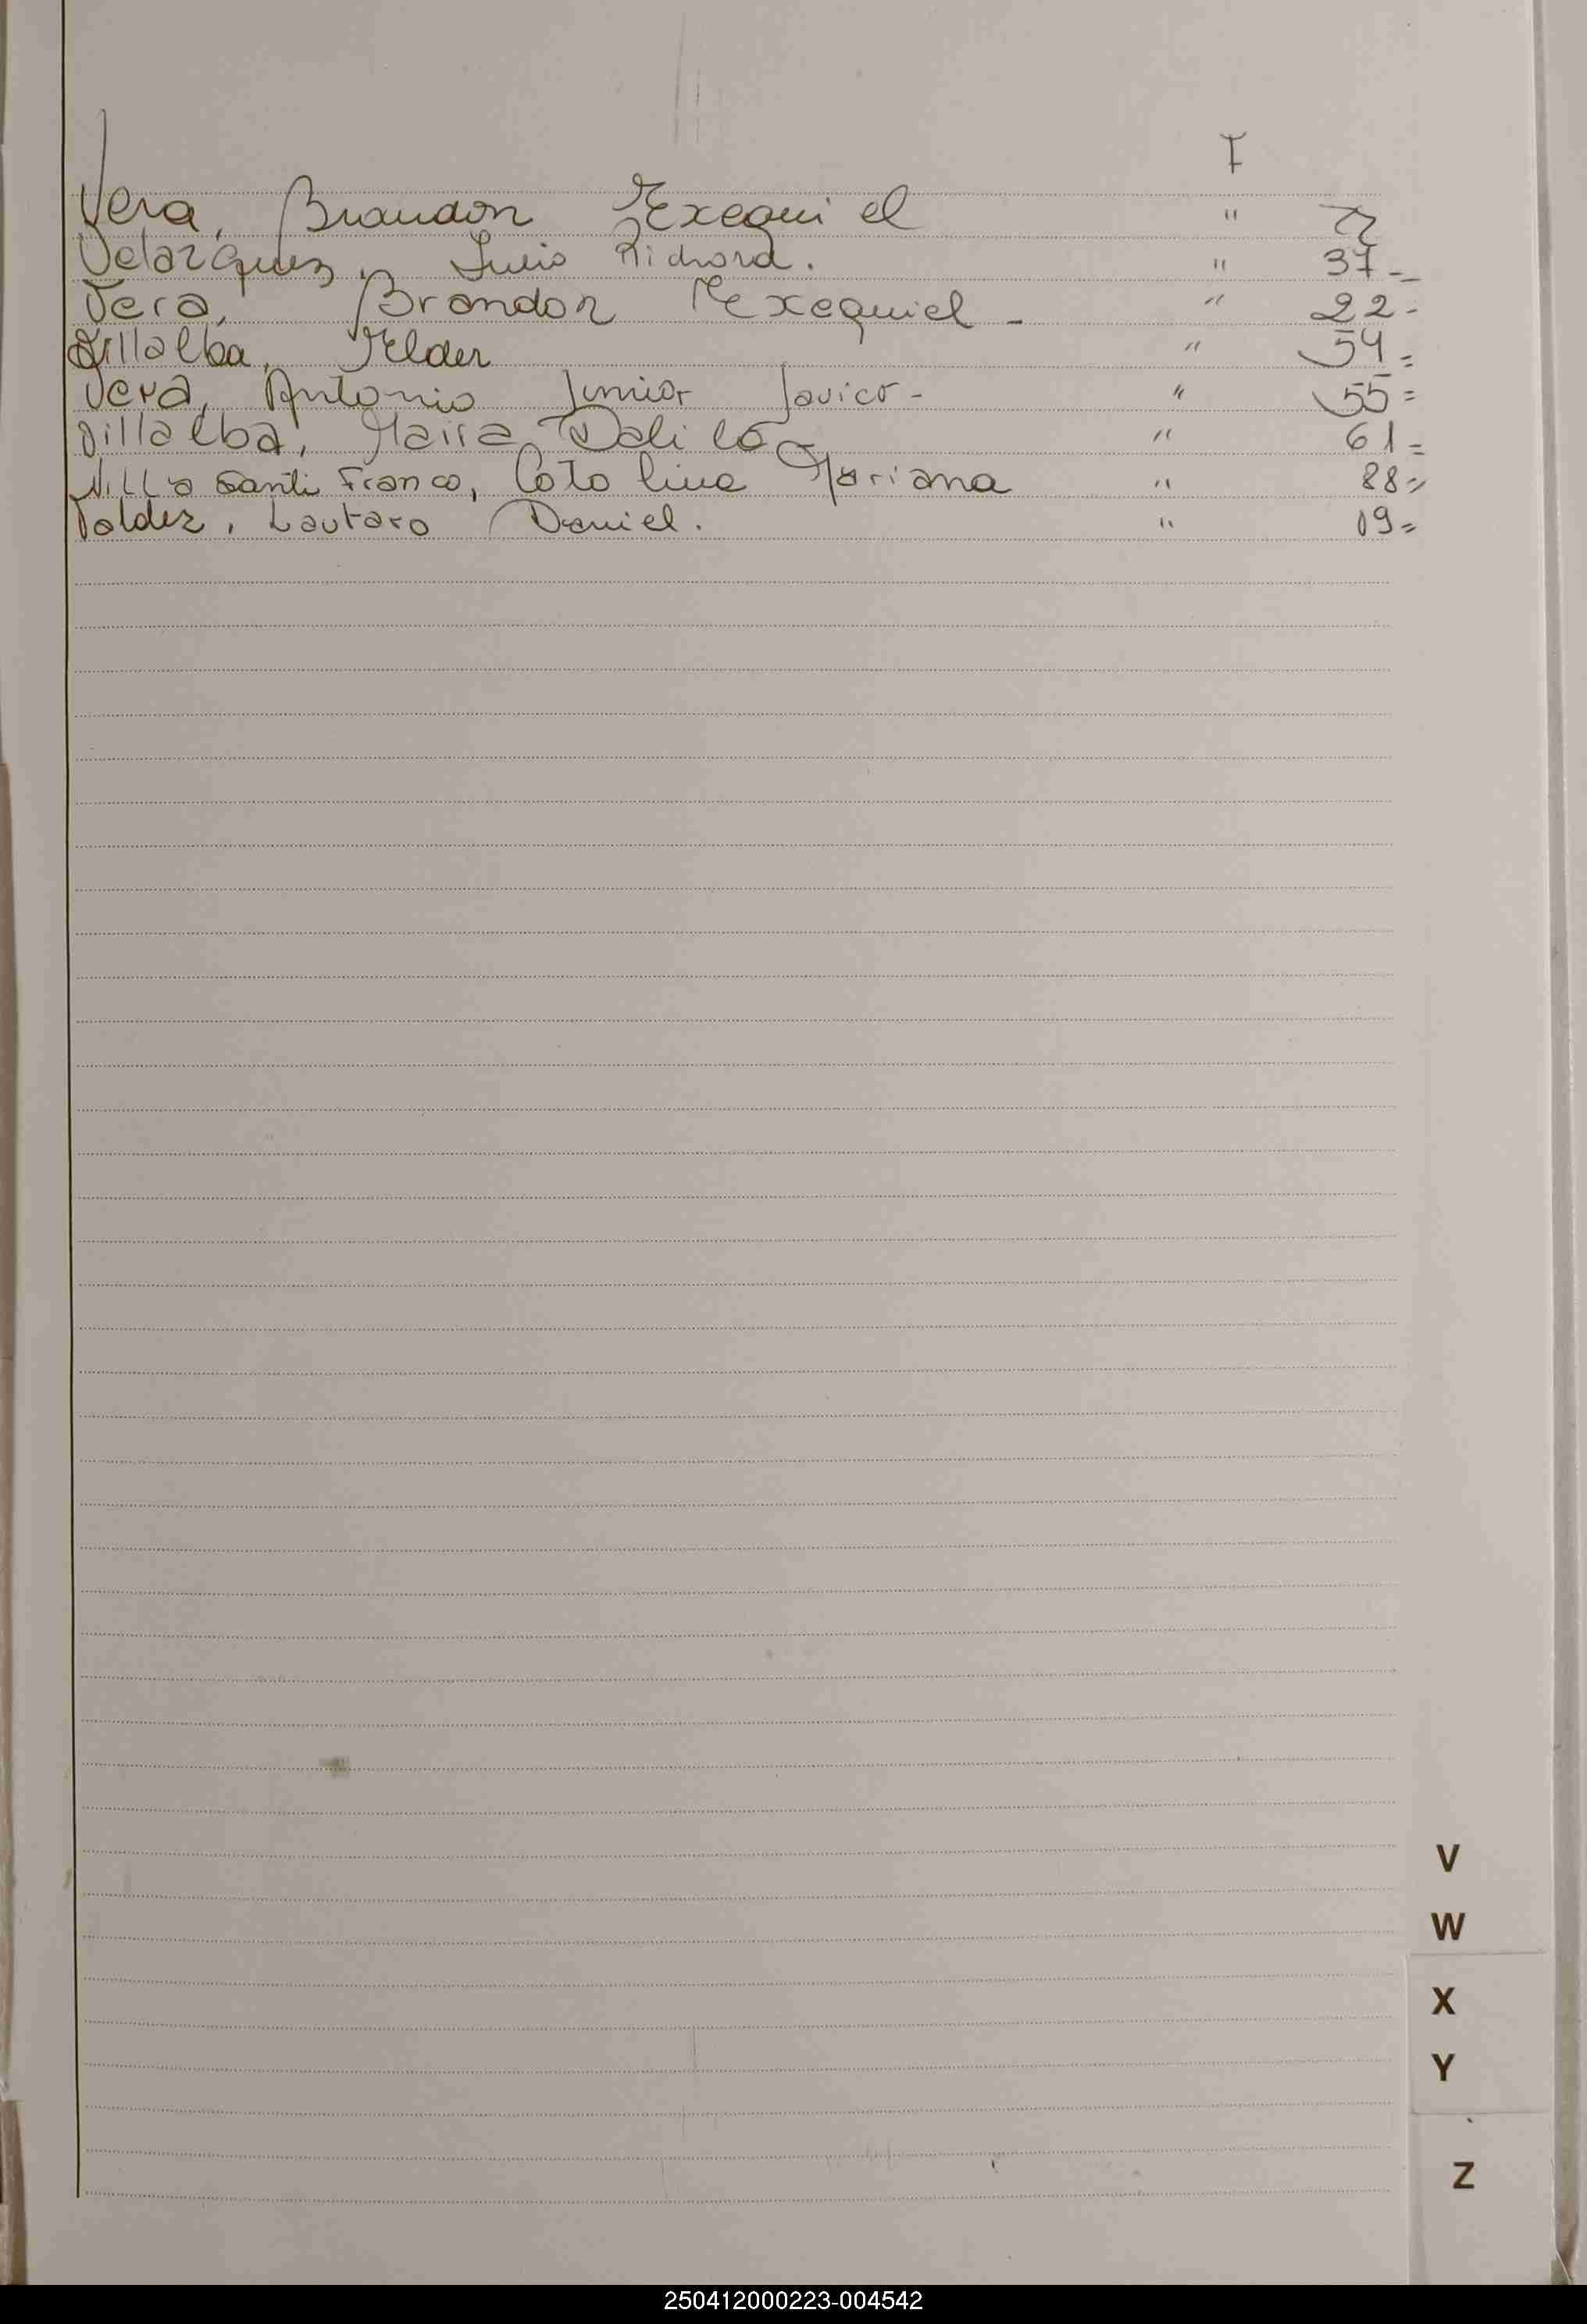 F
Vera, Brandon Exequiel " 22
Velazquez, Lucio Richard. " 37-
Vera, Brandon Exequiel - " 22-
Villalba, Elder " 54=
Vera, Antonio Junior Javier - " 55=
Villalba, Maira Dalila " 61=
Villa Santi Franco, Cataline Mariana " 88=
Valdez, Lautaro Daniel. " 19=
V
W
X
Y
Z
250412000223-004542